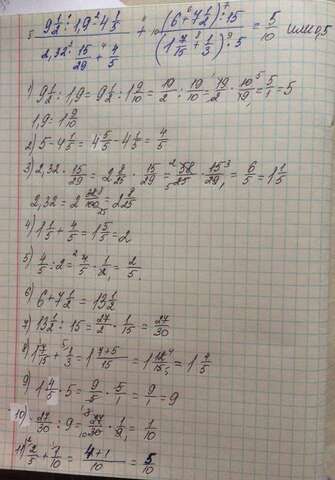 9 1/2 : 1,9 - 4 1/5 / 2,32 · 15/29 + 4/5 + (6 + 7 1/2) : 15 / (1 7/15 + 1/3) · 5 = 5/10 или 0,5
1) 9 1/2 : 1,9 = 9 1/2 : 1 9/10 = 19/2 : 19/10 = 19/2 · 10/19 = 5/1 = 5
1,9 = 1 9/10
2) 5 - 4 1/5 = 4 5/5 - 4 1/5 = 4/5
3) 2,32 · 15/29 = 2 8/25 · 15/29 = 58/25 · 15/29 = 6/5 = 1 1/5
2,32 = 2 32/100 = 2 8/25
4) 1 1/5 + 4/5 = 1 5/5 = 2
5) 4/5 : 2 = 4/5 · 1/2 = 2/5.
6) 6 + 7 1/2 = 13 1/2
7) 13 1/2 : 15 = 27/2 · 1/15 = 27/30
8) 1 7/15 + 1/3 = 1 7+5/15 = 1 12/15 = 1 4/5
9) 1 4/5 · 5 = 9/5 · 5/1 = 9/1 = 9
10) 27/30 : 9 = 27/30 · 1/9 = 1/10
11) 2/5 + 1/10 = 4+1/10 = 5/10